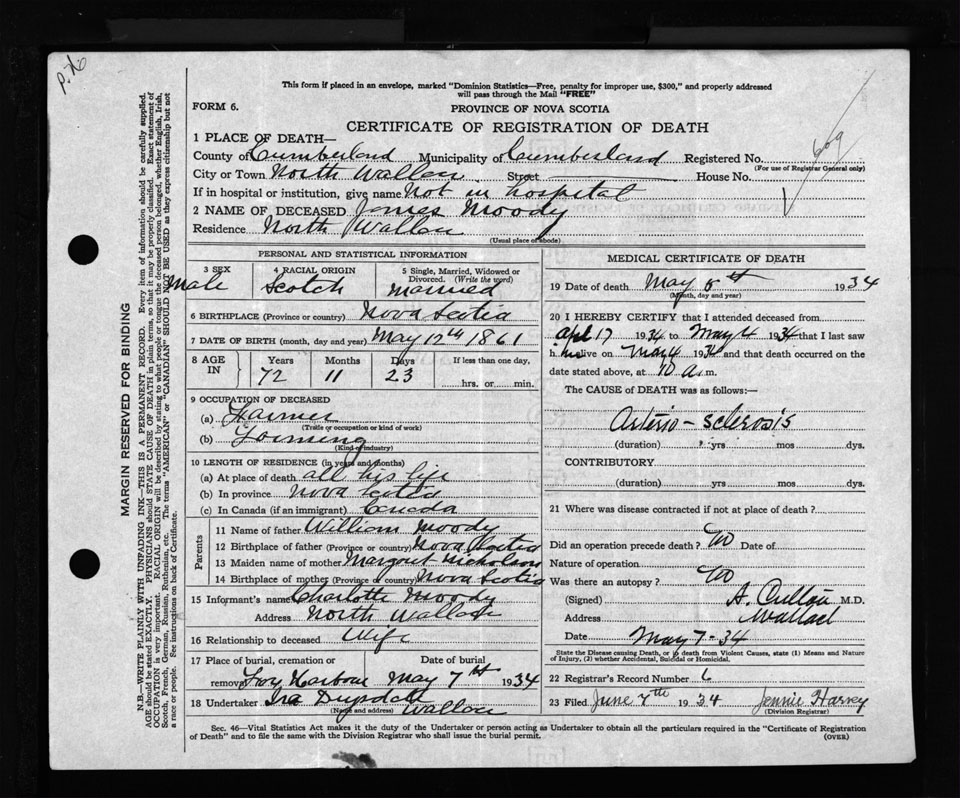 P. No
This form if placed in an envelope, marked "Dominion Statistics—Free, penalty for improper use, $300," and properly addressed
will pass through the Mail "FREE"
FORM 6.
PROVINCE OF NOVA SCOTIA
CERTIFICATE OF REGISTRATION OF DEATH
1 PLACE OF DEATH—
County of Cumberland Municipality of Cumberland Registered No. 609
(For use of Registrar General only)
City or Town North Wallace Street House No.
If in hospital or institution, give name Not in hospital
2 NAME OF DECEASED James Moody
Residence North Wallace
(Usual place of abode)
MARGIN RESERVED FOR BINDING
N.B.—WRITE PLAINLY WITH UNFADING INK—THIS IS A PERMANENT RECORD. Every item of information should be carefully supplied.
AGE should be stated EXACTLY. PHYSICIANS should STATE CAUSE OF DEATH in plain terms, so that it may be properly classified. Exact statement of
OCCUPATION is very important. RACIAL ORIGIN will be described by stating to what people or tongue the deceased person belonged, whether English, Irish,
Scotch, French, German, Russian, Ruthenian, etc. The terms "AMERICAN" or "CANADIAN" SHOULD NOT BE USED as they express citizenship but not
a race or people. See instructions on back of Certificate.
PERSONAL AND STATISTICAL INFORMATION
3 SEX
Male
4 RACIAL ORIGIN
Scotch
5 Single, Married, Widowed or
Divorced. (Write the word)
Married
6 BIRTHPLACE (Province or country) Nova Scotia
7 DATE OF BIRTH (month, day and year) May 12th 1861
8 AGE
IN
Years Months Days If less than one day,
72 11 23 hrs. or min.
9 OCCUPATION OF DECEASED
(a) Farmer
(Trade or occupation or kind of work)
(b) Farming
(Kind of industry)
10 LENGTH OF RESIDENCE (in years and months)
(a) At place of death all his life
(b) In province Nova Scotia
(c) In Canada (if an immigrant) Canada
Parents
11 Name of father William Moody
12 Birthplace of father (Province or country) Nova Scotia
13 Maiden name of mother Margret Nicholson
14 Birthplace of mother (Province or country) Nova Scotia
15 Informant's name Charlotte Moody
Address North Wallace
16 Relationship to deceased Wife
17 Place of burial, cremation or Date of burial
removal Harbour May 7th 1934
18 Undertaker Ira
Wallace
(Name and address)
MEDICAL CERTIFICATE OF DEATH
19 Date of death May th 1934
(Month, day and year)
20 I HEREBY CERTIFY that I attended deceased from
Apl 17 1934 to May 4 1934 that I last saw
h im alive on May 4 1934 and that death occurred on the
date stated above, at 10 a.m.
The CAUSE OF DEATH was as follows:—
Arterio-sclerosis
(duration) ? yrs mos dys.
CONTRIBUTORY
(duration) yrs mos dys.
21 Where was disease contracted if not at place of death?
Did an operation precede death? No Date of
Nature of operation
Was there an autopsy? No
(Signed) A. M.D.
Address Wallace
Date May 7-34
State the Disease causing Death, or in death from Violent Causes, state (1) Means and Nature
of Injury, (2) whether Accidental, Suicidal or Homicidal.
22 Registrar's Record Number 6
23 Filed June 7th 1934 Jennie Harvey
(Division Registrar)
Sec. 46—Vital Statistics Act makes it the duty of the Undertaker or person acting as Undertaker to obtain all the particulars required in the "Certificate of Registration
of Death" and to file the same with the Division Registrar who shall issue the burial permit.
(OVER)